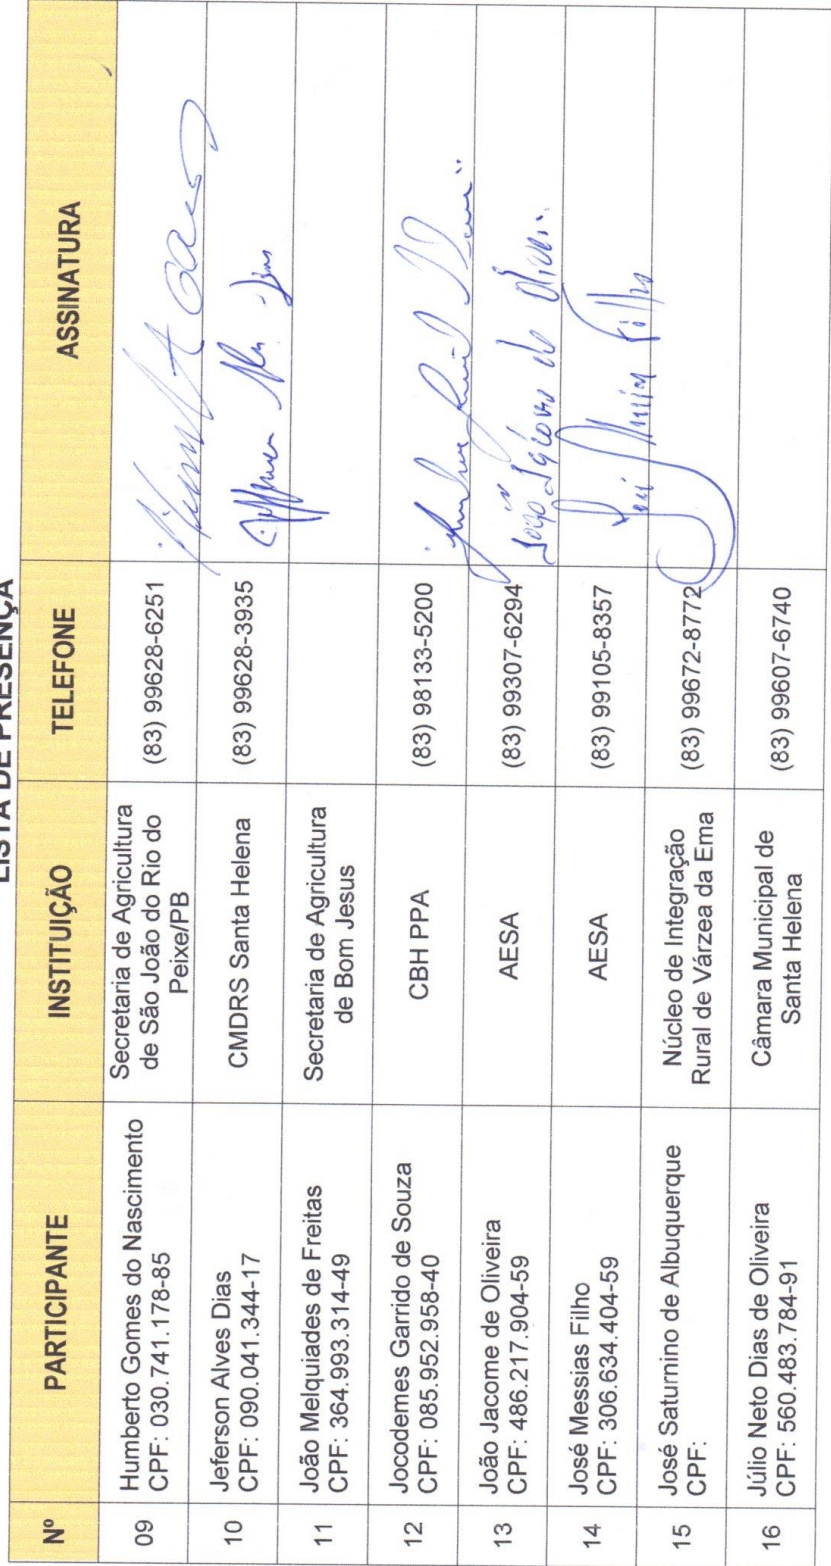 LISTA DE PRESENÇA
Nº PARTICIPANTE INSTITUIÇÃO TELEFONE ASSINATURA
09
Humberto Gomes do Nascimento
CPF: 030.741.178-85
Secretaria de Agricultura
de São João do Rio do
Peixe/PB
(83) 99628-6251
10
Jeferson Alves Dias
CPF: 090.041.344-17
CMDRS Santa Helena
(83) 99628-3935
Jefferson Alves Dias
11
João Melquiades de Freitas
CPF: 364.993.314-49
Secretaria de Agricultura
de Bom Jesus
12
Jocodemes Garrido de Souza
CPF: 085.952.958-40
CBH PPA
(83) 98133-5200
13
João Jacome de Oliveira
CPF: 486.217.904-59
AESA
(83) 99307-6294
João Jácome de Oliveira
14
José Messias Filho
CPF: 306.634.404-59
AESA
(83) 99105-8357
José Messias Filho
15
José Saturnino de Albuquerque
CPF:
Núcleo de Integração
Rural de Várzea da Ema
(83) 99672-8772
16
Júlio Neto Dias de Oliveira
CPF: 560.483.784-91
Câmara Municipal de
Santa Helena
(83) 99607-6740